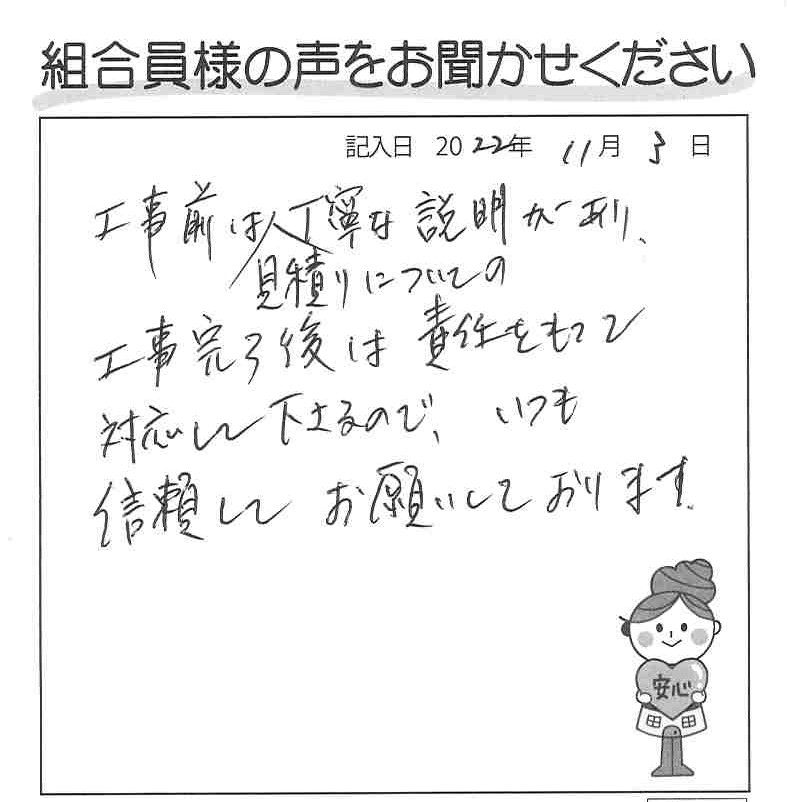 組合員様の声をお聞かせください
記入日 2022年 11月 3日
工事前は丁寧な説明があり、
見積りについての
工事完了後は責任をもって
対応して下さるので、いつも
信頼して お願いしております。
安心